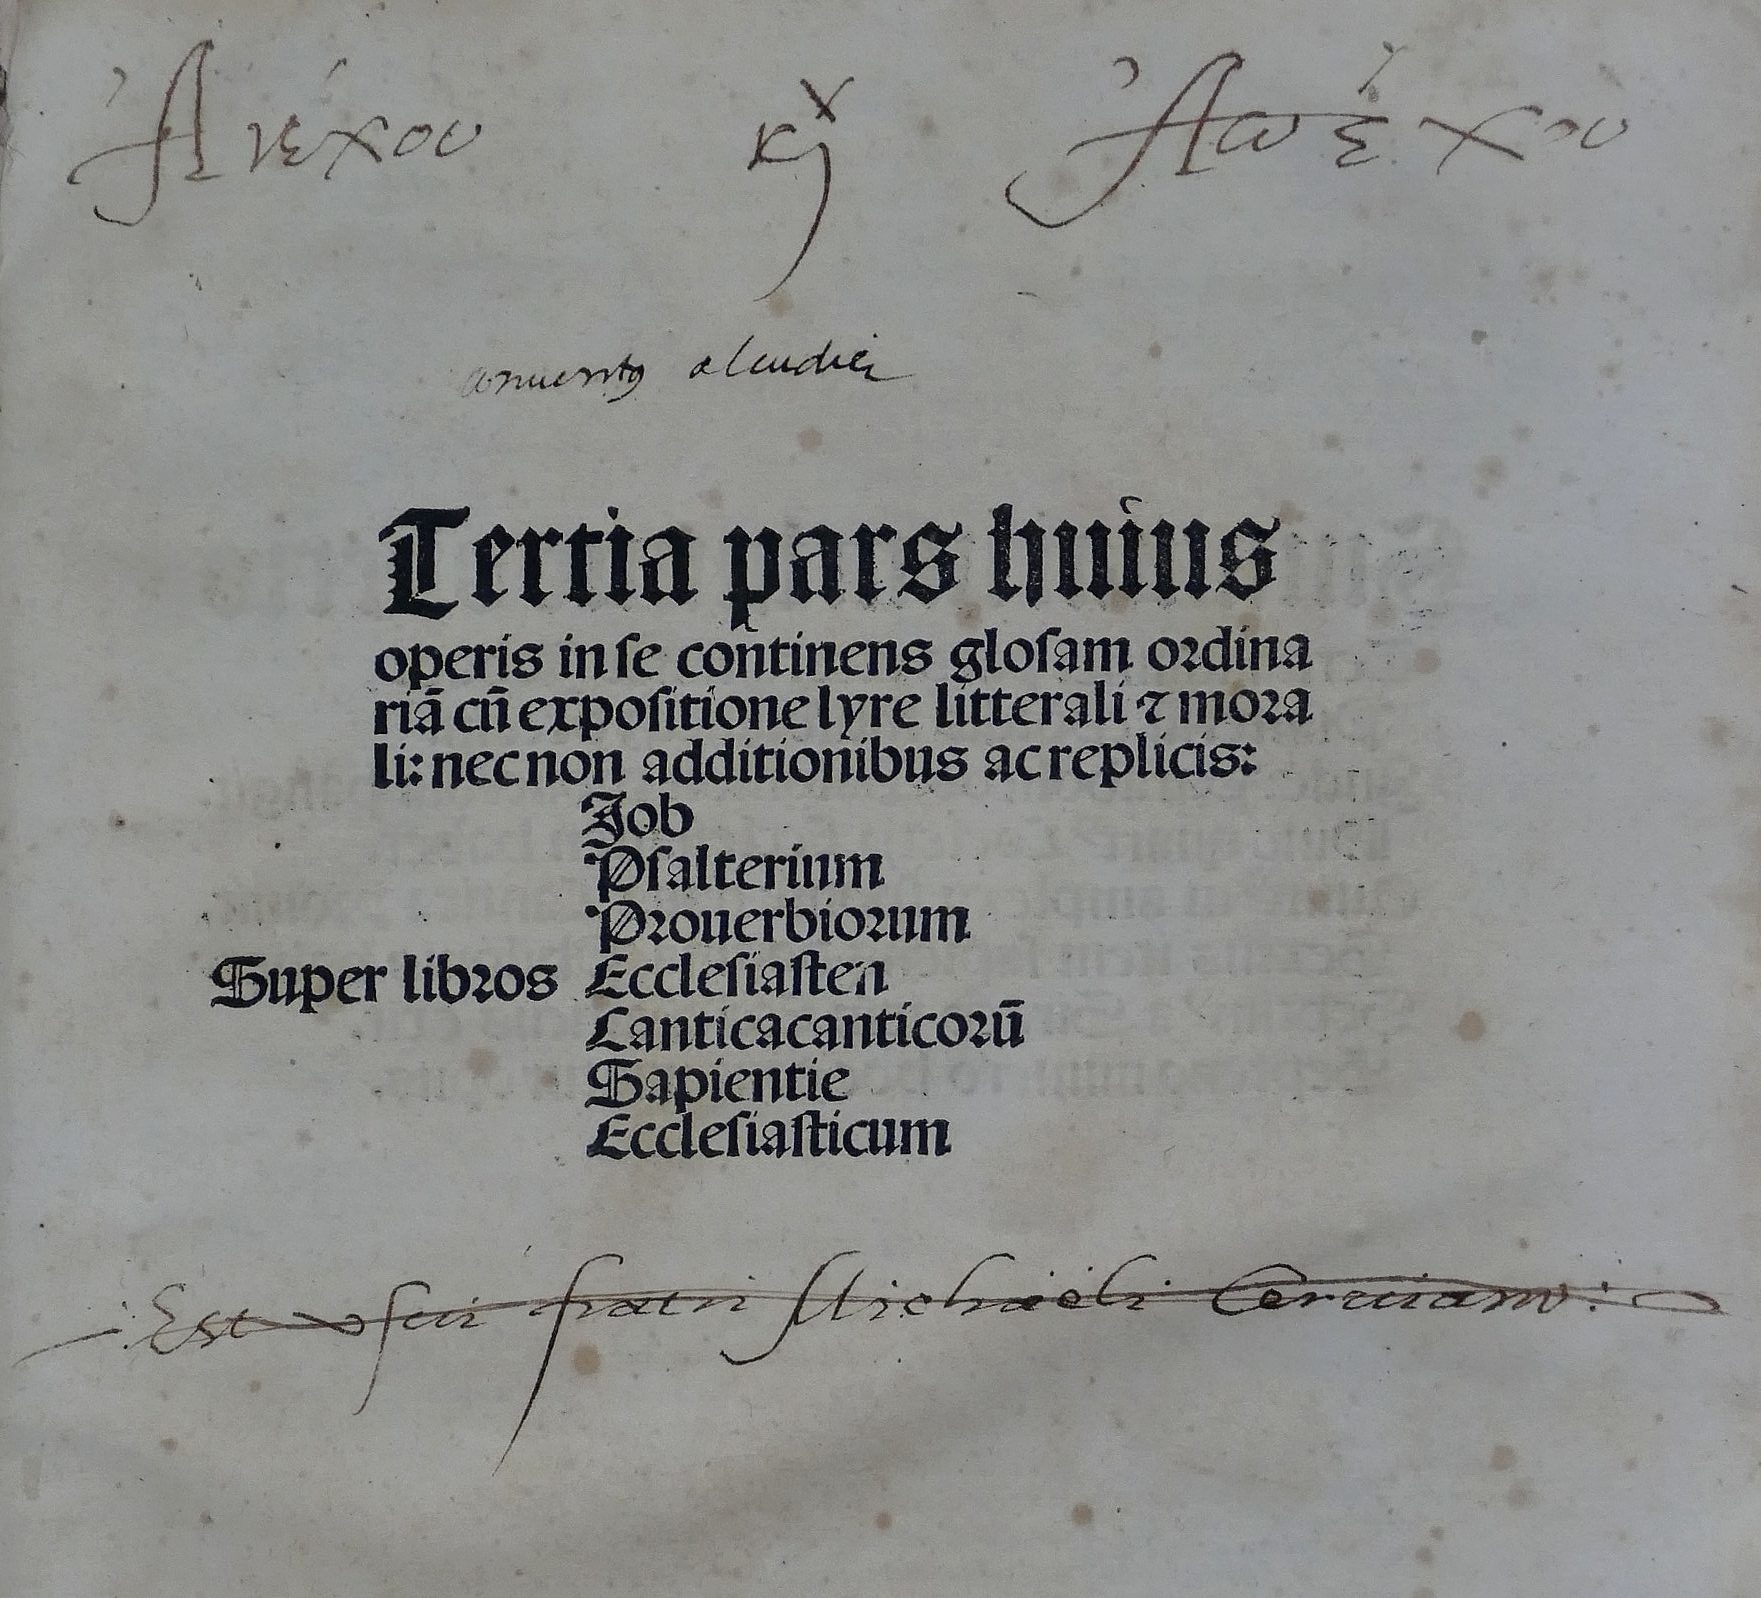 Ἀνέχου κὶ Ἀπέχου
Tertia pars huius
operis in se continens glosam ordina
riā cū expositione lyre litterali ⁊ mora
li: necnon additionibus ac replicis:
Job
Psalterium
Prouerbiorum
Super libros Ecclesiasten
Canticacanticorū
Sapientie
Ecclesiasticum
Est usui fratri Michaeli